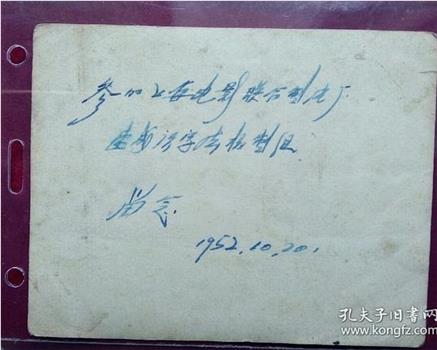 参加上海电影联合制片厂
速成识字法摄制组
留念
1952.10.20.
孔夫子旧书网
www.kongfz.com